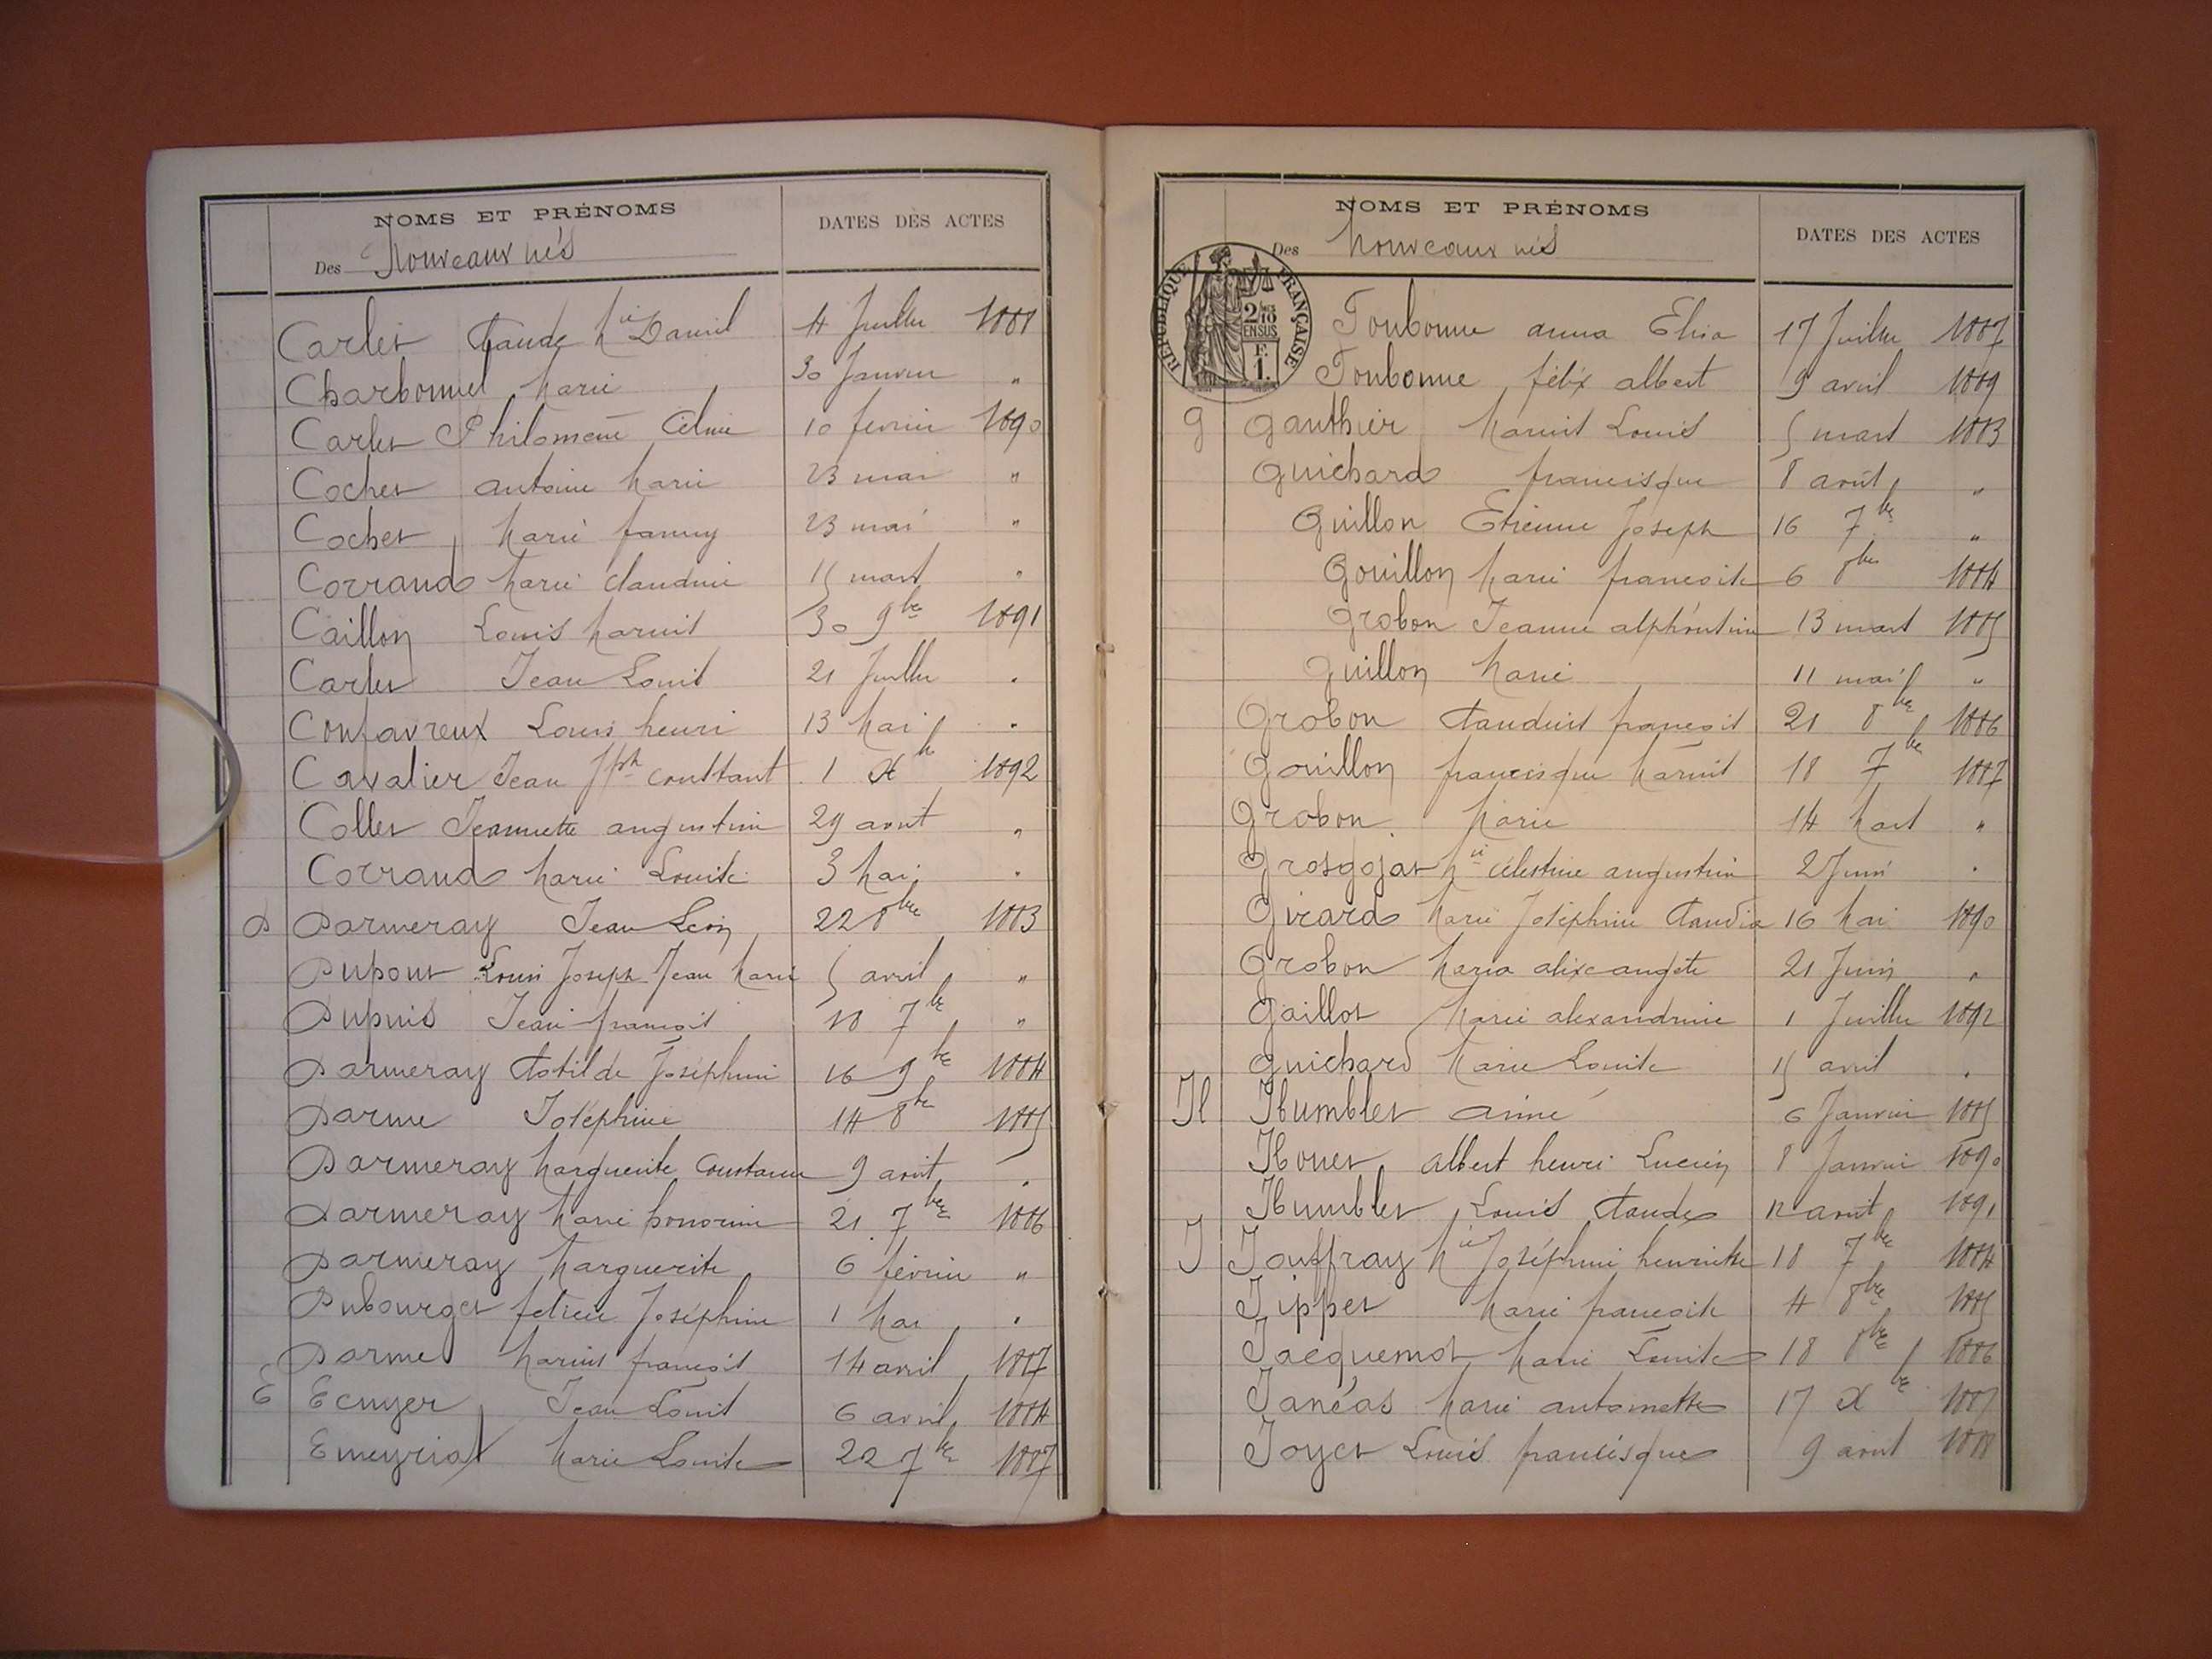 NOMS ET PRÉNOMS
DATES DES ACTES
Des Nouveaux nés
Carlet Claude Mie Daniel 4 Juillet 1888
Charbonnel Marie 30 Janvier "
Carlet Philomène Céline 10 février 1890
Cochet antoine Marie 23 mai "
Cochet Marie fanny 23 mai "
Corrand Marie Claudine 15 mars "
Caillon Louis Marius 30 9bre 1891
Carlet Jean Louis 21 Juillet "
Confavreux Louis henri 13 Mai "
Cavalier Jean Jph constant 1 Xbre 1892
Collet Jeannette augustine 29 août "
Corrand Marie Louise 3 Mai "
D Darmeray Jean Léon 22 8bre 1883
Dupont Louis Joseph Jean Marie 5 avril "
Dupuis Jean françois 10 7bre "
Darmeray Clotilde Joséphine 16 9bre 1884
Darme Joséphine 14 8bre 1885
Darmeray Marguerite Constance 9 août "
Darmeray Marie honorine 21 7bre 1886
Darmeray Marguerite 6 février "
Dubourget félicie Joséphine 1 Mai "
Darme Marius françois 14 avril 1887
E Ecuyer Jean Louis 6 avril 1884
Emeyriat Marie Louise 22 7bre 1887
NOMS ET PRÉNOMS
DATES DES ACTES
Des Nouveaux nés
RÉPUBLIQUE FRANÇAISE
2/10 EN SUS
F. 1.
Fonbonne anna Elisa 17 Juillet 1887
Fonbonne félix albert 9 avril 1889
G Gauthier Marius Louis 5 mars 1883
Guichard francisque 8 août "
Guillon Etienne Joseph 16 7bre "
Gouillon Marie françoise 6 8bre 1884
Grobon Jeanne alphonsine 13 mars 1885
Guillon Marie 11 mai "
Grobon Claudius françois 21 8bre 1886
Gouillon francisque Marius 18 7bre 1887
Grobon Marie 14 Mars "
Grosgojat Mie célestine augustine 2 Juin "
Girard Marie Joséphine Claudia 16 Mai 1890
Grobon Maria alix 21 Juin "
Gaillot Marie alexandrine 1 Juillet 1892
Guichard Marie Louise 15 avril "
H Humblet aimé 6 Janvier 1885
Houet albert henri Lucien 8 Janvier 1890
Humblet Louis Claude 12 août 1891
J Jouffray Mie Joséphine henriette 18 7bre 1884
Jippet Marie françoise 4 8bre 1885
Jacquemot Marie Louise 18 8bre 1886
Janéas Marie antoinette 17 Xbre 1887
Joyet Louis francisque 9 août 1888